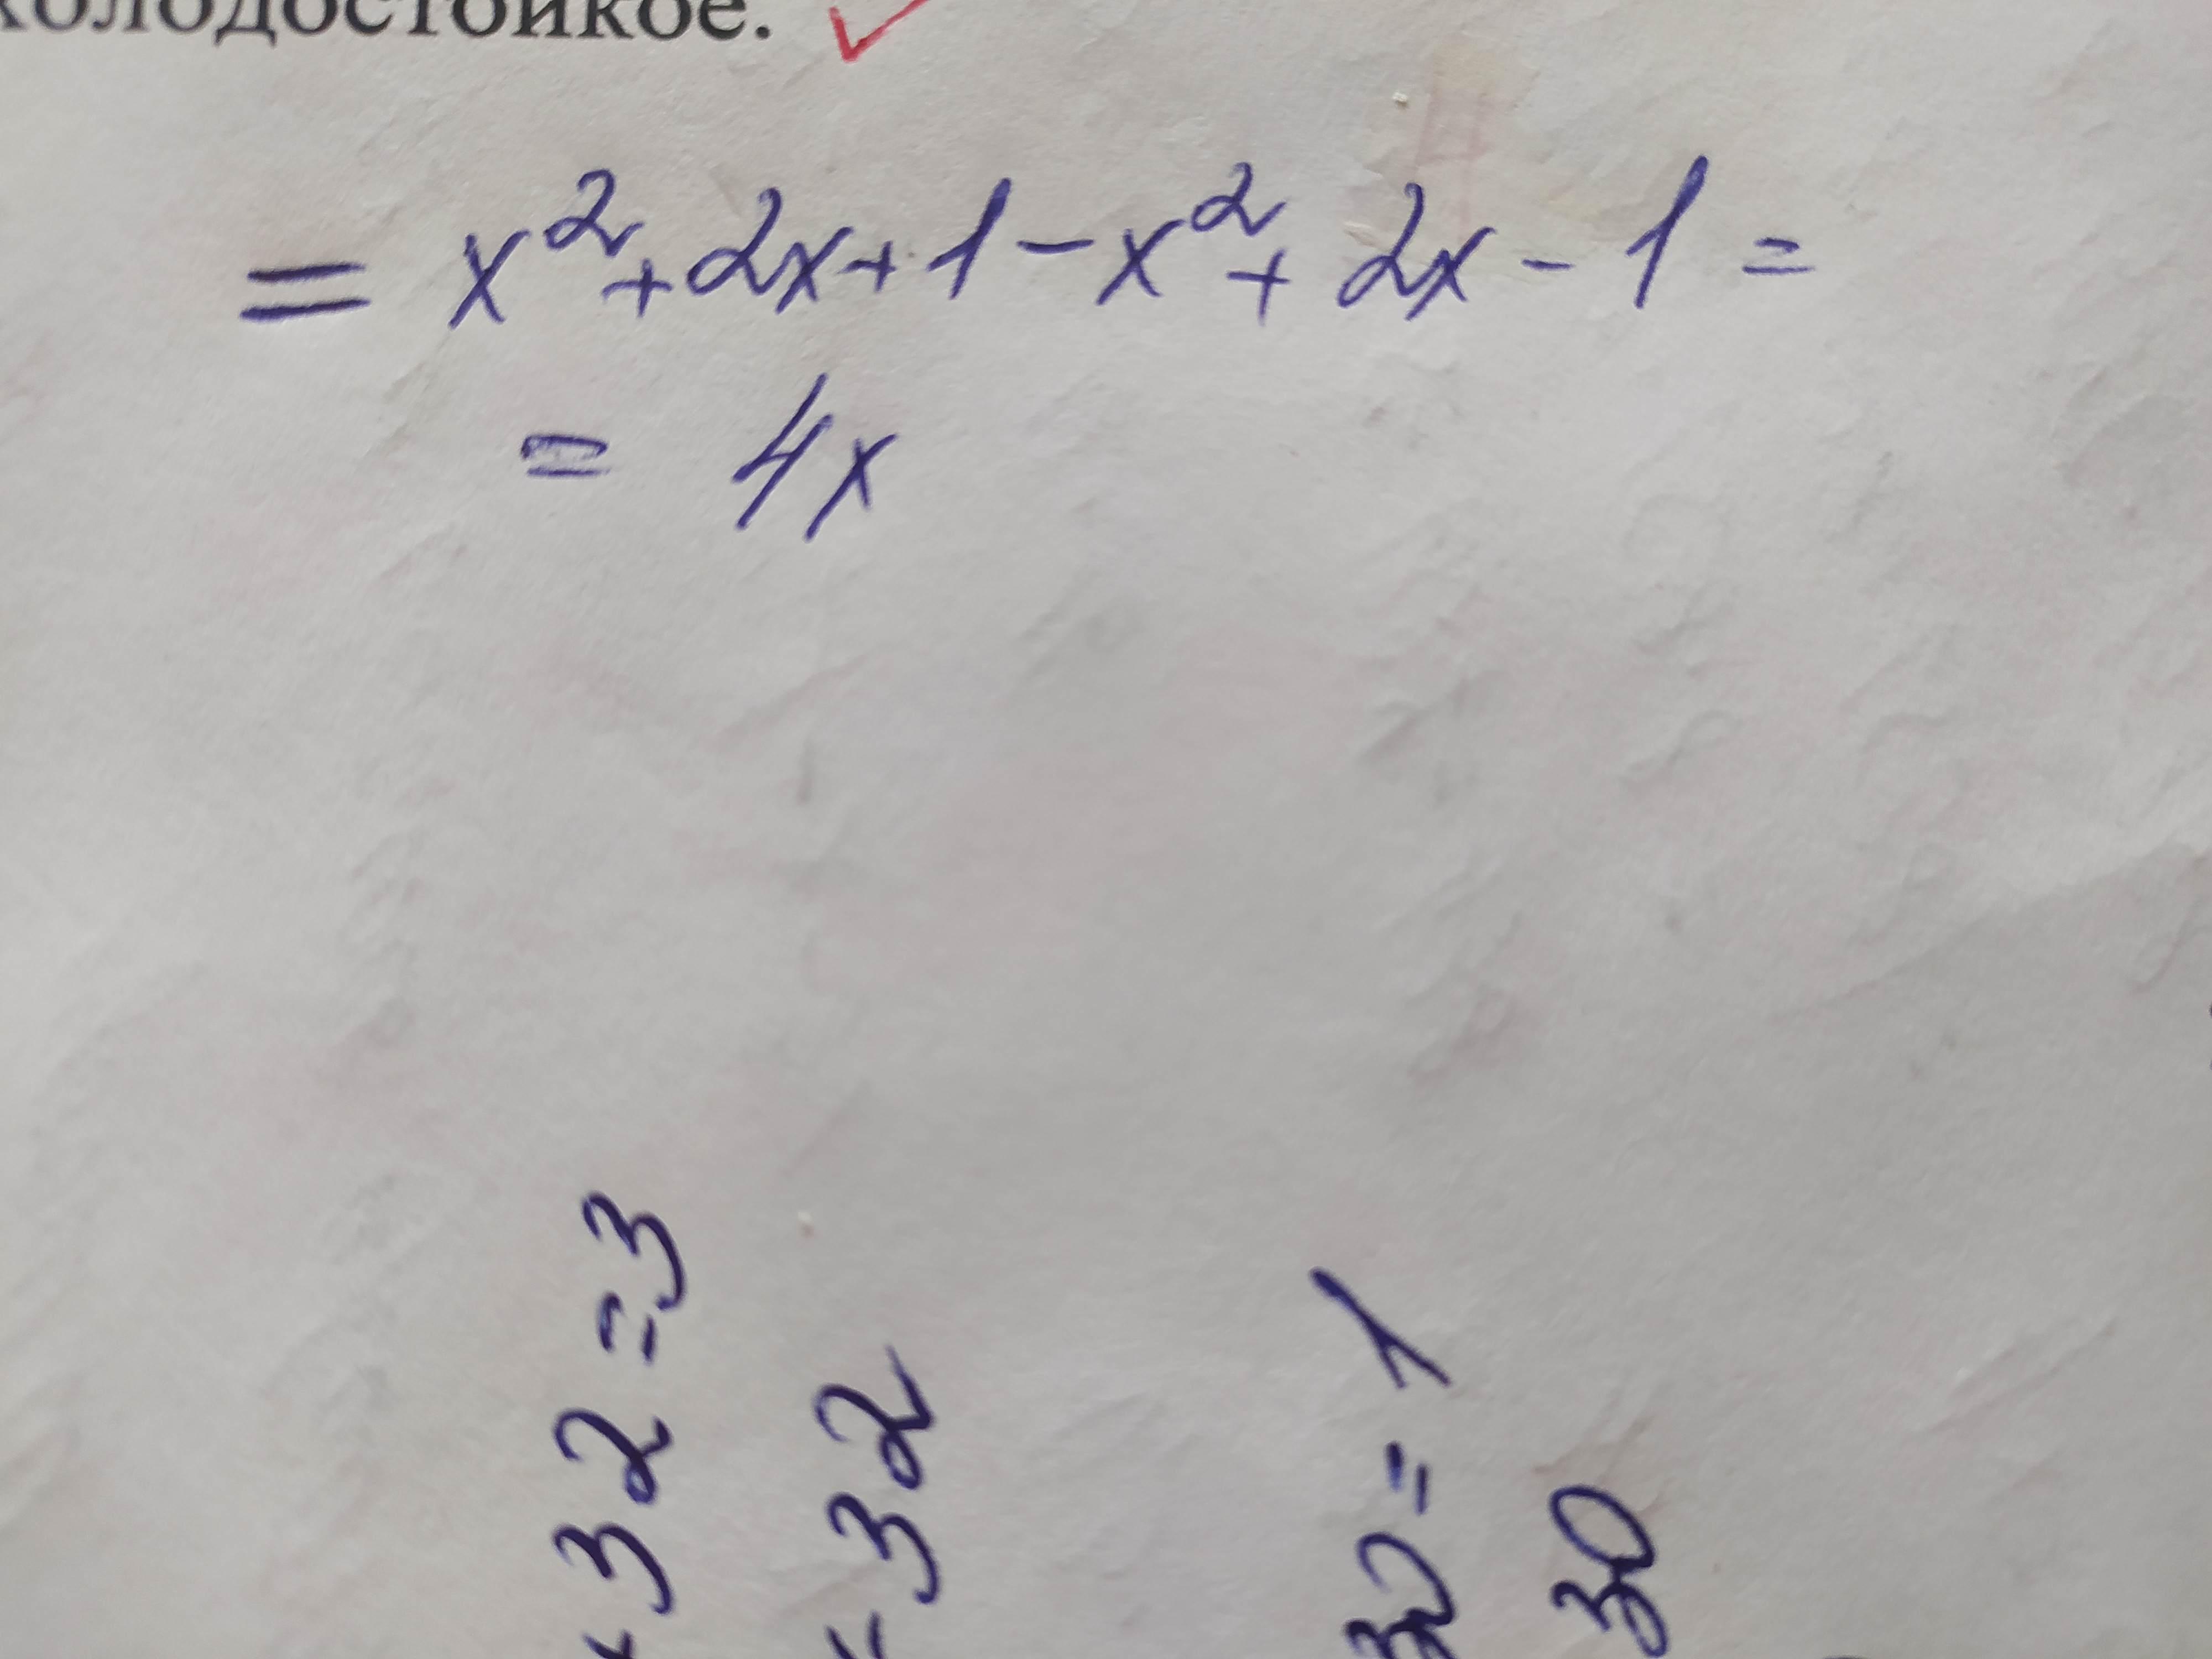 холодостойкое. ✓
= x² + 2x + 1 - x² + 2x - 1 =
= 4x
32 = 3
= 32
30 = 1
30